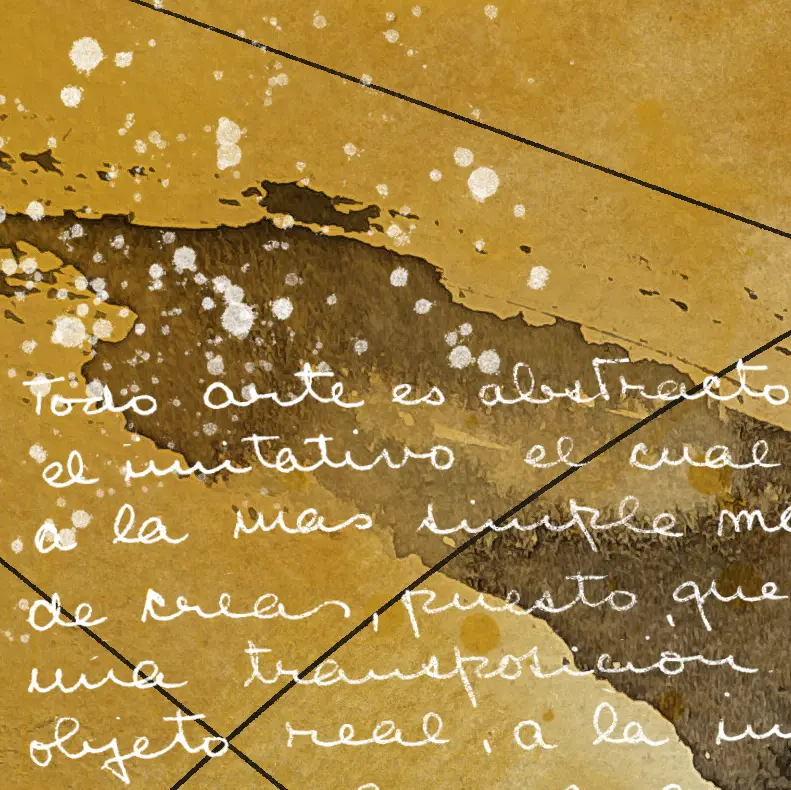 Todo arte es abstracto
el imitativo el cual
a la mas simple
de crear, puesto, que
una transposición
objeto real, a la